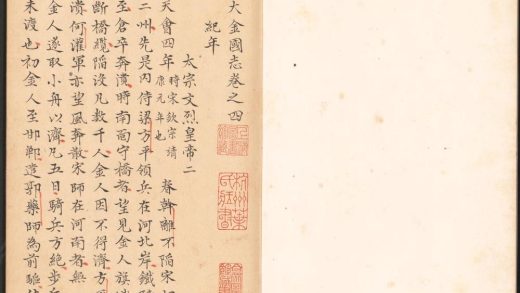 大金國志卷之四
紀年
太宗文烈皇帝二
天會四年時宋欽宗靖康元年也春幹離不陷宋
二州先是內侍梁方平領兵在河北岸鐵
至倉卒奔潰時南面守橋者望見金人旗
斷橋纜陷沒凡數千人金人因不得濟方
潰何灌軍亦望風奔散宋師在河南者無
金人遂取小舟以濟凡五日騎兵方絶步
未渡也初金人至邯鄲遣郭藥師為前驅